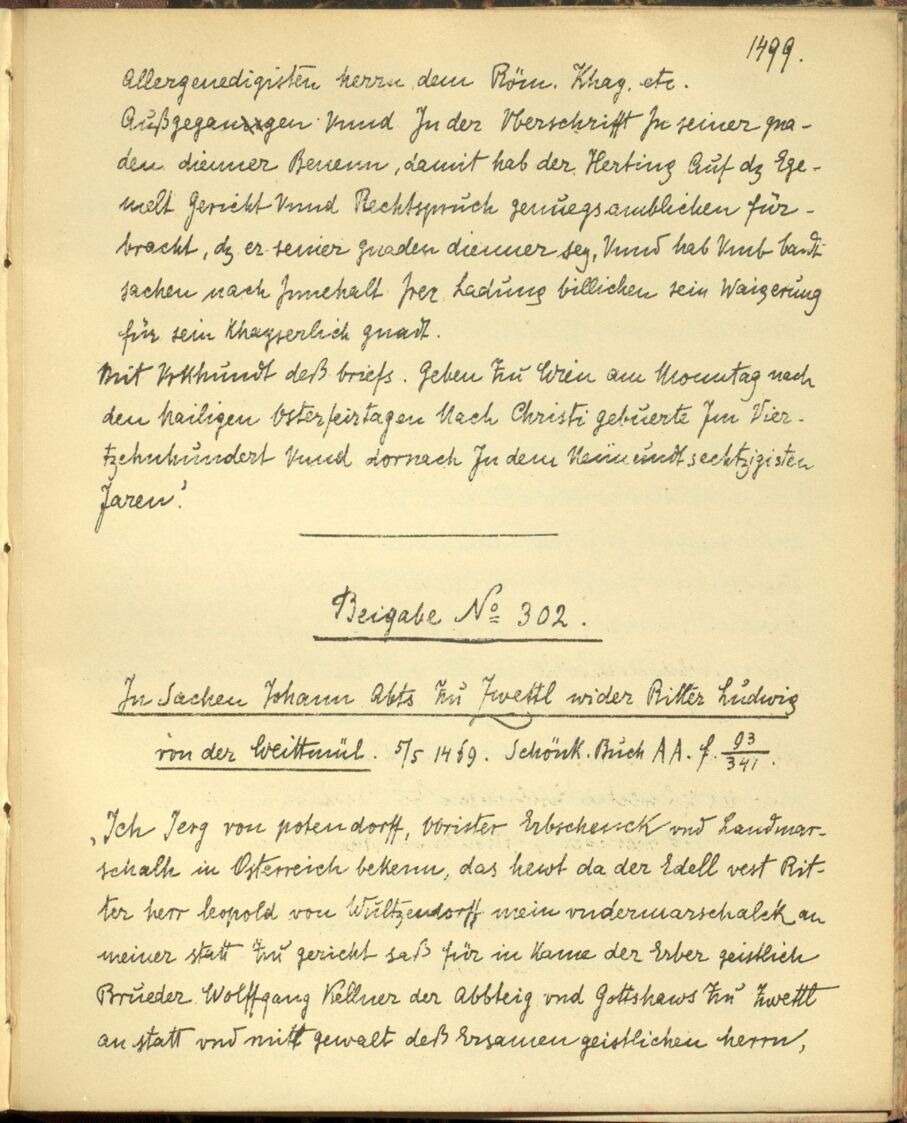 1499.
Allergenedigisten herrn dem Röm. Khay. etc.
Außgegangen Vnnd In der Vberschrifft In seiner gna-
den dienner Benenn, damit hab der Herting Auf dz Ege-
melt Gericht Vnnd Rechtspruch genuegsamblichen für-
bracht, dz er seiner gnaden dienner sey, Vnnd hab Vmb
sachen nach Innehalt Irer Ladung billichen sein Waigerung
für sein Khayserlich gnadt.
Mit Vrkhundt deß briefs. Geben Zu Wien am Monntag nach
den hailigen Osterfeirtagen Nach Christi gebuerte Im Vier-
tzehnhundert Vnnd dornach In dem Neünundtsechtzigisten
Jaren.'
Beigabe No 302.
In Sachen Johann Abts Zu Zwettl wider Ritter Ludwig
von der Weittmül. 5/5 1469. Schönk. Buch AA. f. 93/341.
„Ich Jerg von potendorff, Obrister Erbschenck vnd Landmar-
schalh in Osterreich bekenn, das hewt da der Edell vest Rit-
ter herr leopold von Wultzendorff mein vndermarschalck an
meiner statt Zu gericht saß für in kame der Erber geistlich
Brueder Wolffgang Kellner der Abbteig vnd Gottshaws Zu Zwettl
an statt vnd mitt gewalt deß Ersamen geistlichen herrn,